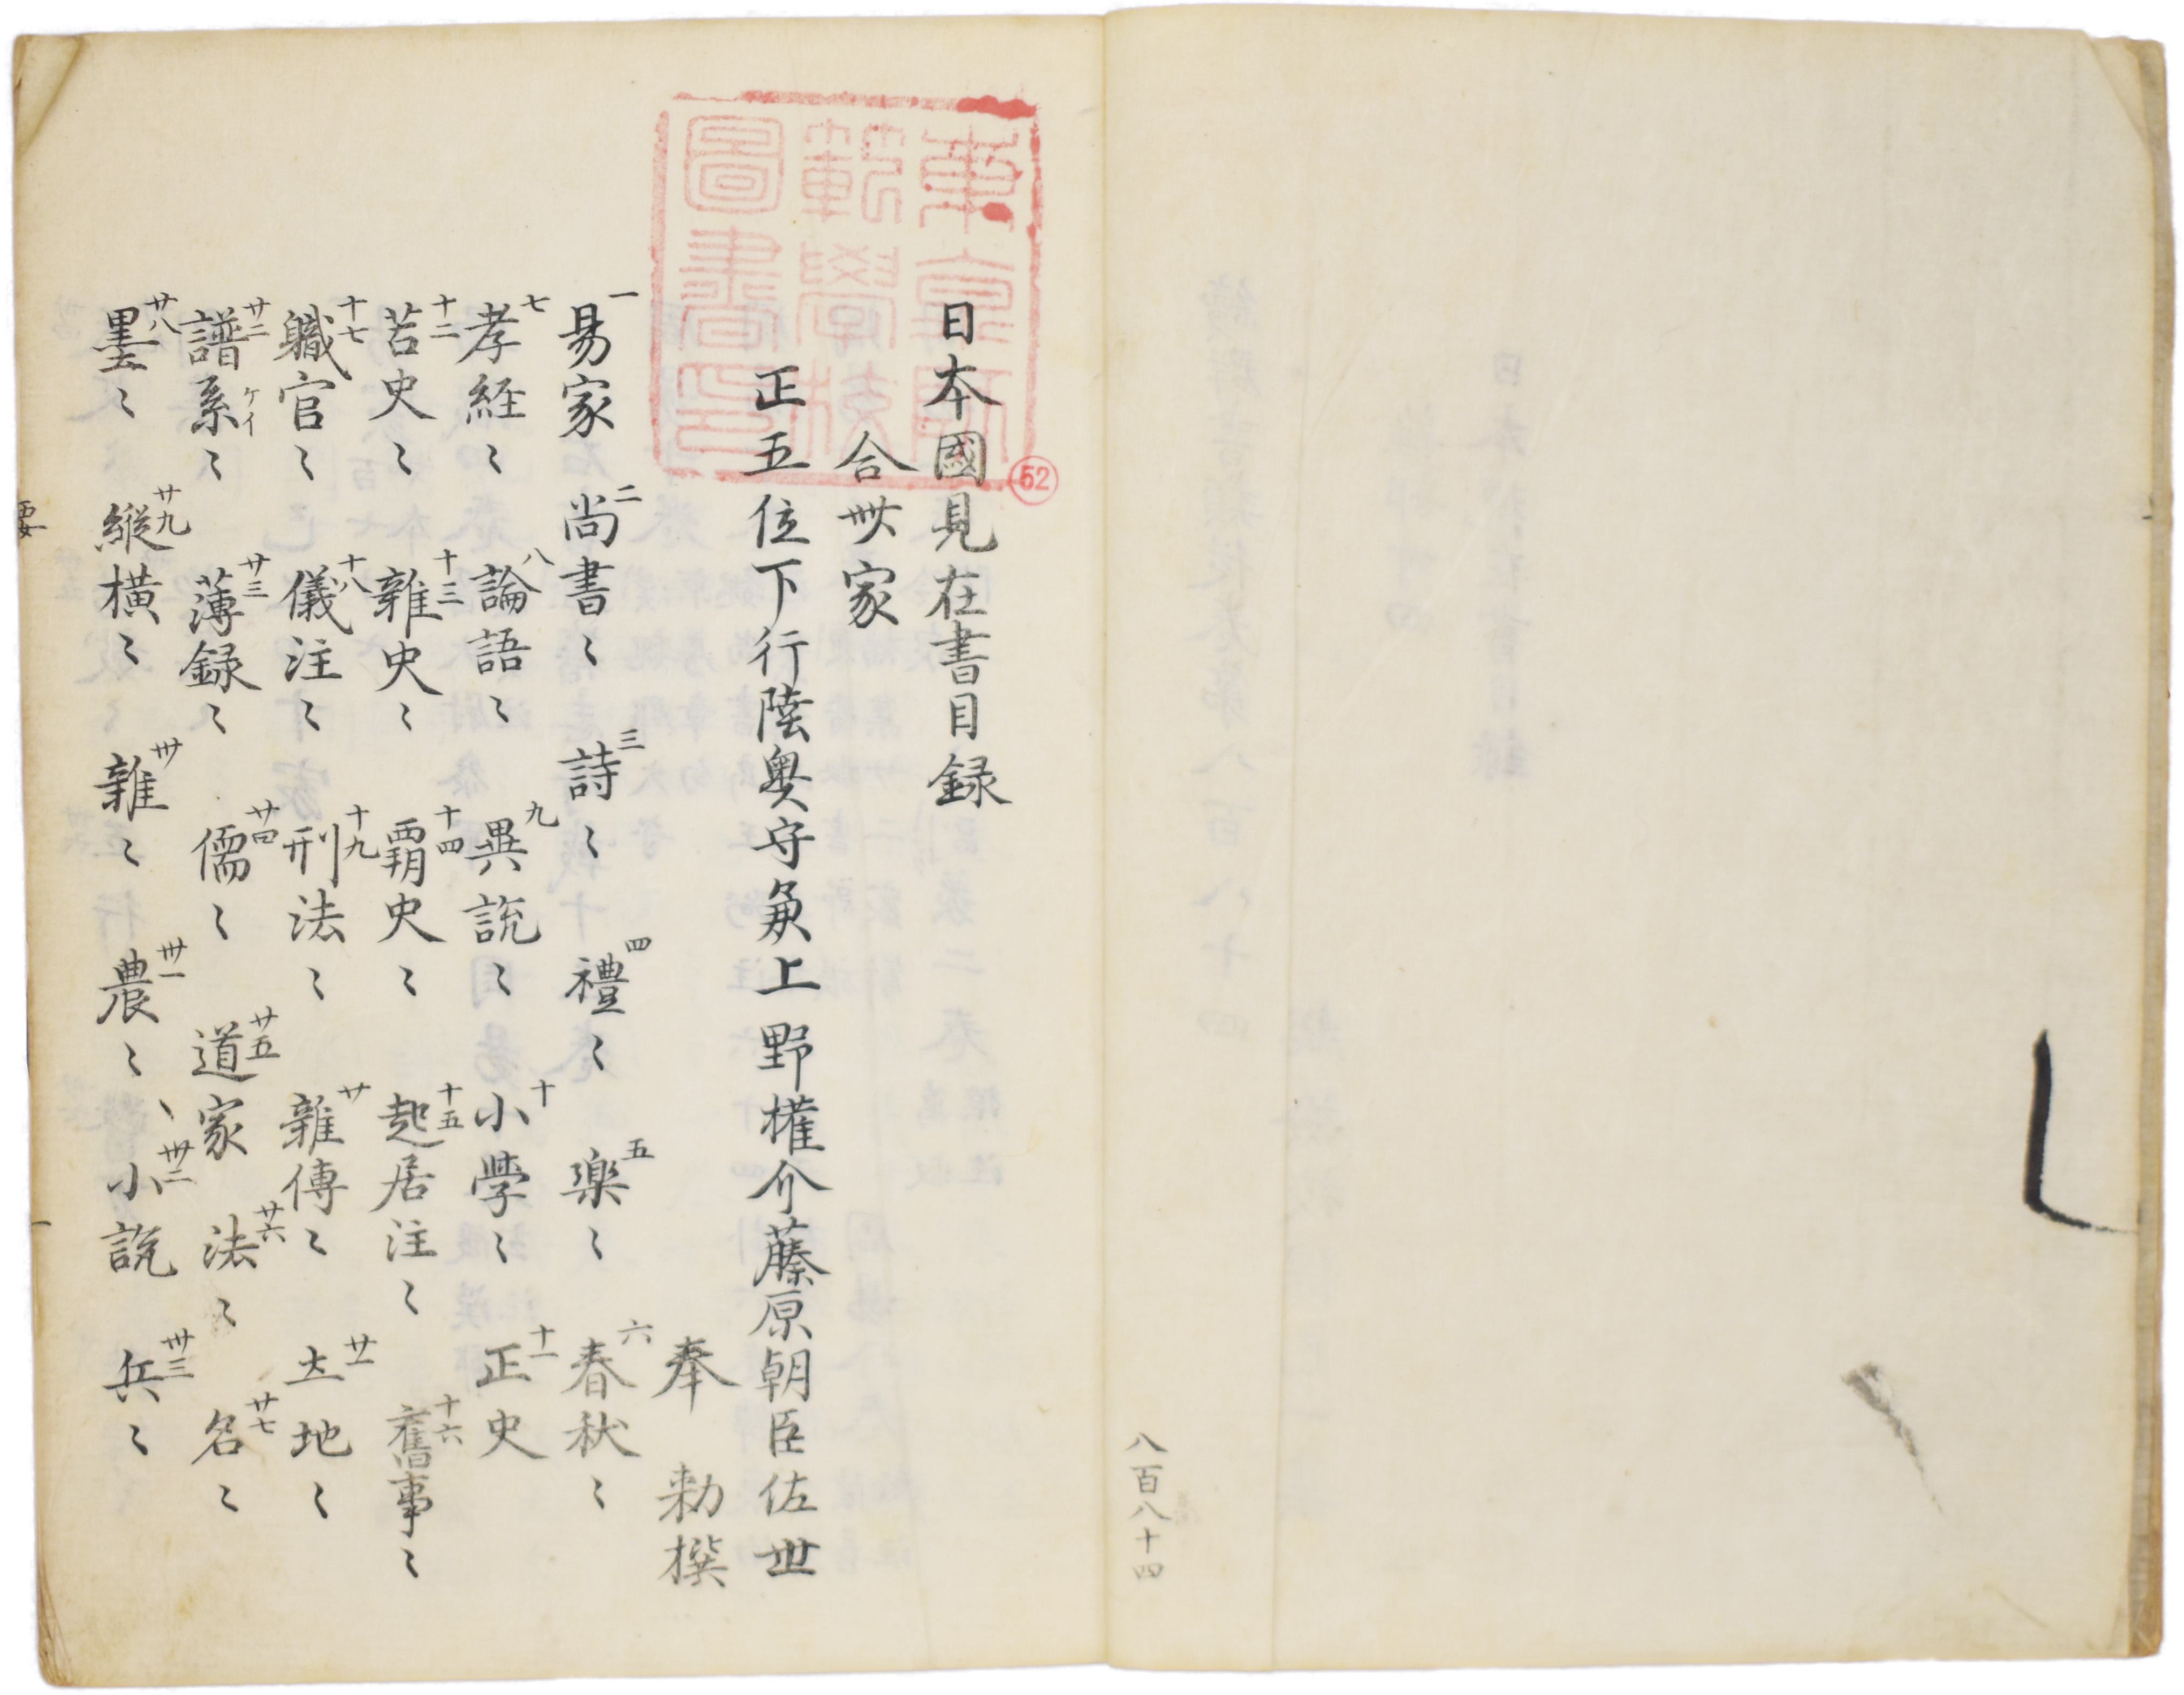 八百八十四
東京師
範學校
圖書印
52
日本國見在書目録
合卌家
正五位下行陸奥守兼上野權介藤原朝臣佐世
奉 勅撰
一易家 二尚書〻 三詩〻 四禮〻 五楽〻 六春秋〻
七孝経〻 八論語〻 九異説〻 十小學〻 十一正史
十二古史〻 十三雜史〻 十四覇史〻 十五起居注〻 十六舊事〻
十七職官〻 十八儀注〻 十九刑法〻 廿雜傳〻 廿一土地〻
廿二譜系ケイ〻 廿三薄録〻 廿四儒〻 廿五道家 廿六法〻 廿七名〻
廿八墨〻 廿九縱横〻 卅雜〻 卅一農〻 卅二小説 卅三兵〻